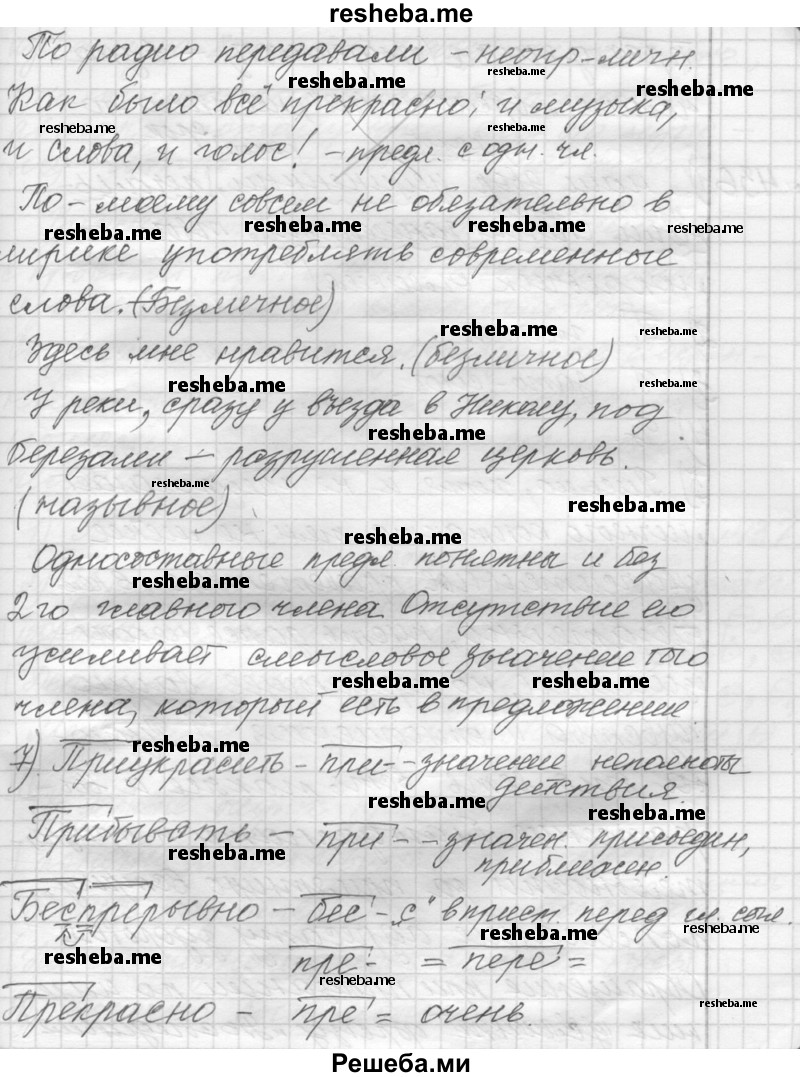 resheba.me
По радио передавали – неопр-личн.
Как было всё прекрасно: и музыка,
и слова, и голос! – предл. с одн. чл.
По-моему совсем не обязательно в
лирике употреблять современные
слова. (Безличное)
Здесь мне нравится. (безличное)
У реки, сразу у въезда в Николу, под
березами – разрушенная церковь.
(назывное)
Односоставные предл. понятны и без
2го главного члена. Отсутствие его
усиливает смысловое значение того
члена, который есть в предложении
7) Приукрасить – при- – значение неполноты
действия.
Прибывать – при- – значен. присоедин,
приближен.
Беспрерывно – бес – „с" в прист. перед гл. согл.
пре- = пере =
Прекрасно – пре = очень.
Решеба.ми